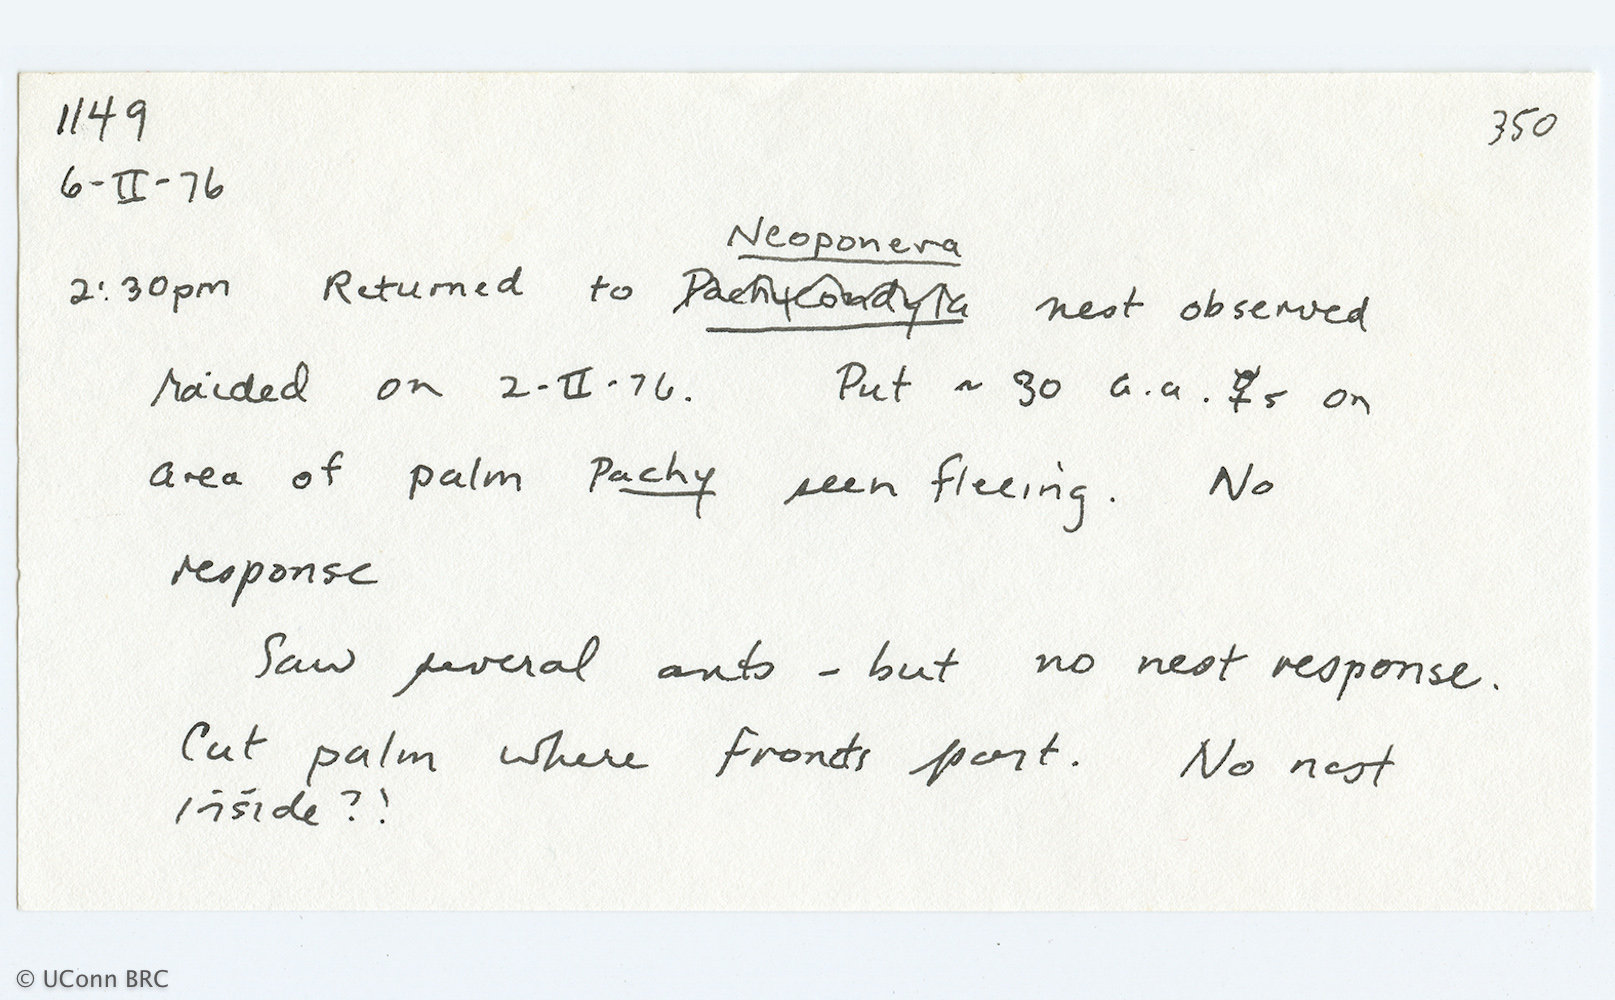 1149
350
6-II-76
Neoponera
2:30pm Returned to Pachycondyla nest observed
raided on 2-II-76. Put ~ 30 a.a. ☿s on
area of palm Pachy seen fleeing. No
response
Saw several ants - but no nest response.
Cut palm where fronds part. No nest
inside?!
© UConn BRC